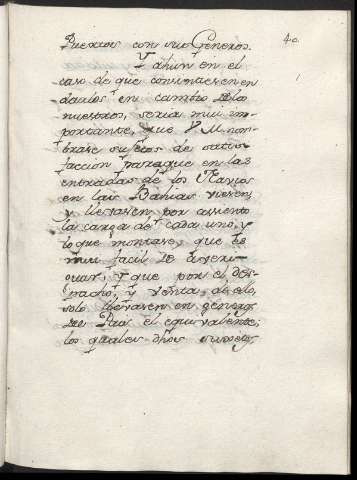 40
Puertos con sus Generos.
Y ahun en el
caso de que consintiesen en
darlos en cambio de los
nuestros, seria mui im-
portante, que V M nom-
brase sujetos de satis-
faccion paraque en las
entradas de los Navios
en las Bahias viesen,
y llevasen por assiento
la carga de cada uno, y
lo que montase, que es
mui facil de averi-
guar, y que por el des-
pacho, y venta, de ello,
solo llevasen en generos
del Pais el equivalente;
los quales dhos sujetos